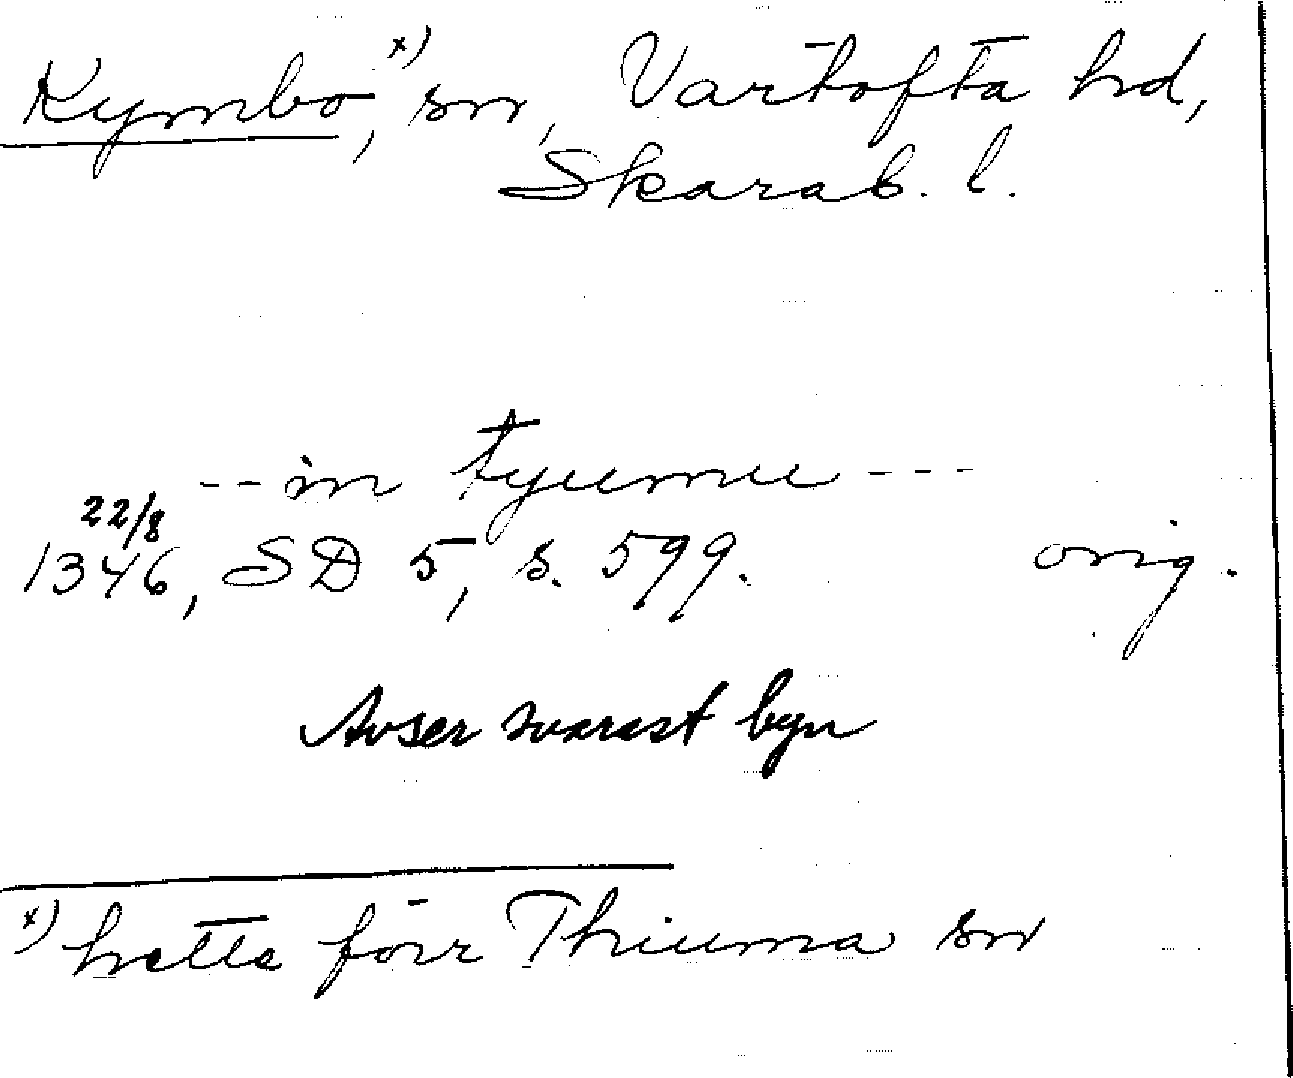 Kymbo,ˣ⁾ sn, Vartofta hd,
Skarab. l.
-- in tyumu ---
22/8
1346, SD 5, s. 599. orig.
Avser snarast byn
ˣ⁾ hette förr Thiuma sn